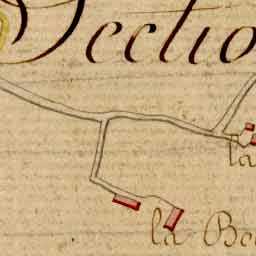 Sectio
la
la Be